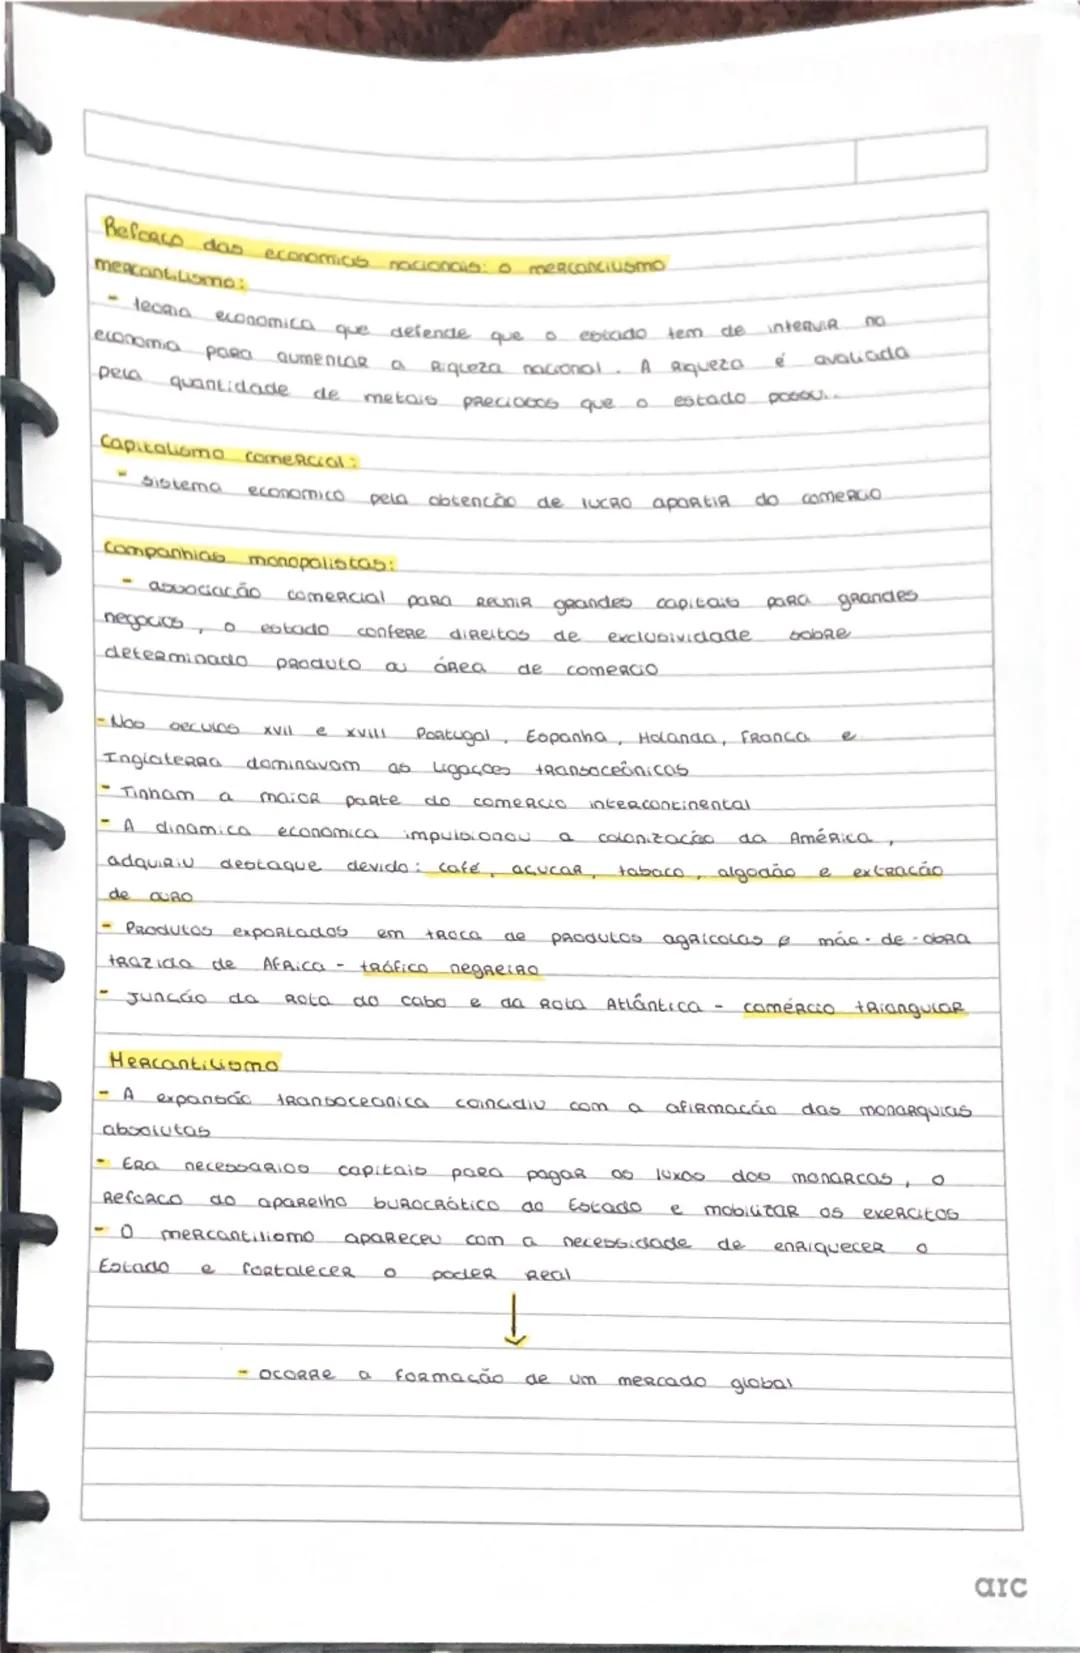 Reforço das economias nacionais: o mercantilismo
mercantilismo:
- teoria economica que defende que o estado tem de intervir na
economia para aumentar a riqueza nacional. A riqueza é avaliada
pela quantidade de metais preciosos que o estado possui.
Capitalismo comercial:
- sistema economico pela obtenção de lucro apartir do comercio
Companhias monopolistas:
- associação comercial para reunir grandes capitais para grandes
negocios, o estado confere direitos de exclusividade sobre
determinado produto ou área de comercio
- Nos seculos XVII e XVIII Portugal, Espanha, Holanda, França e
Inglaterra dominavam as ligações transoceânicas
- Tinham a maior parte do comercio intercontinental
- A dinamica económica impulsionou a colonização da América,
adquiriu destaque devido: café, açucar, tabaco, algodão e extração
de ouro
- Produtos exportados em troca de produtos agricolas e mão-de-obra
trazida de Africa - tráfico negreiro
- Junção da Rota do cabo e da Rota Atlântica - comércio triangular
Mercantilismo
- A expansão transoceanica coincidiu com a afirmação das monarquias
absolutas
- Era necessarios capitais para pagar os luxos dos monarcas, o
Reforço do aparelho burocrático do Estado e mobilizar os exercitos
- O mercantilismo apareceu com a necessidade de enriquecer o
Estado e fortalecer o poder Real
↓
- ocorre a formação de um mercado global
arc